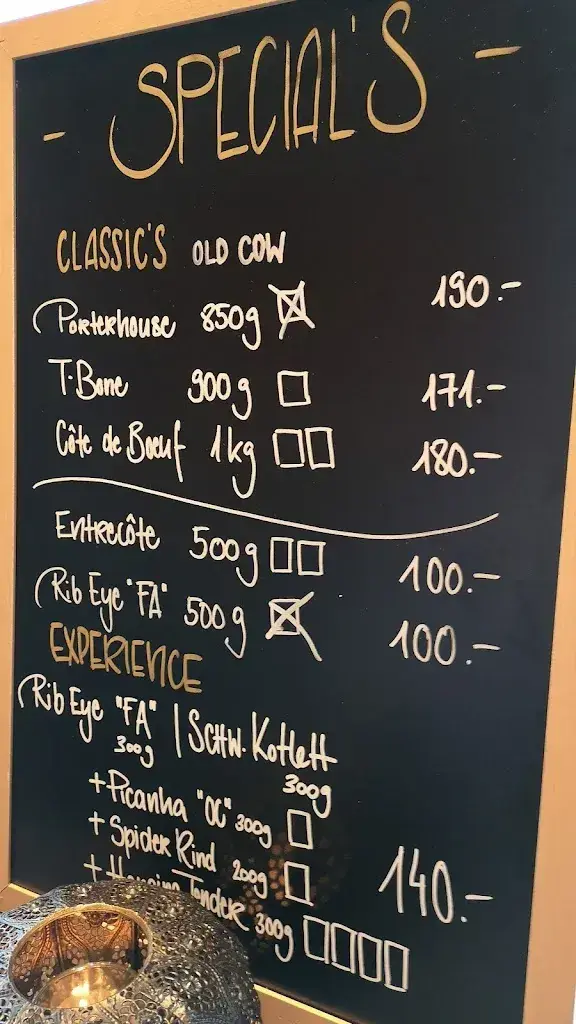 - SPECIAL'S -
CLASSIC'S OLD COW
Porterhouse 850g 190.-
T-Bone 900g 171.-
Côte de Boeuf 1kg 180.-
Entrecôte 500g 100.-
Rib Eye "FA" 500g 100.-
EXPERIENCE
Rib Eye "FA" | SCHW. Kotlett
300g 300g
+ Picanha "OC" 300g
+ Spider Rind 200g 140.-
+ Tender 300g